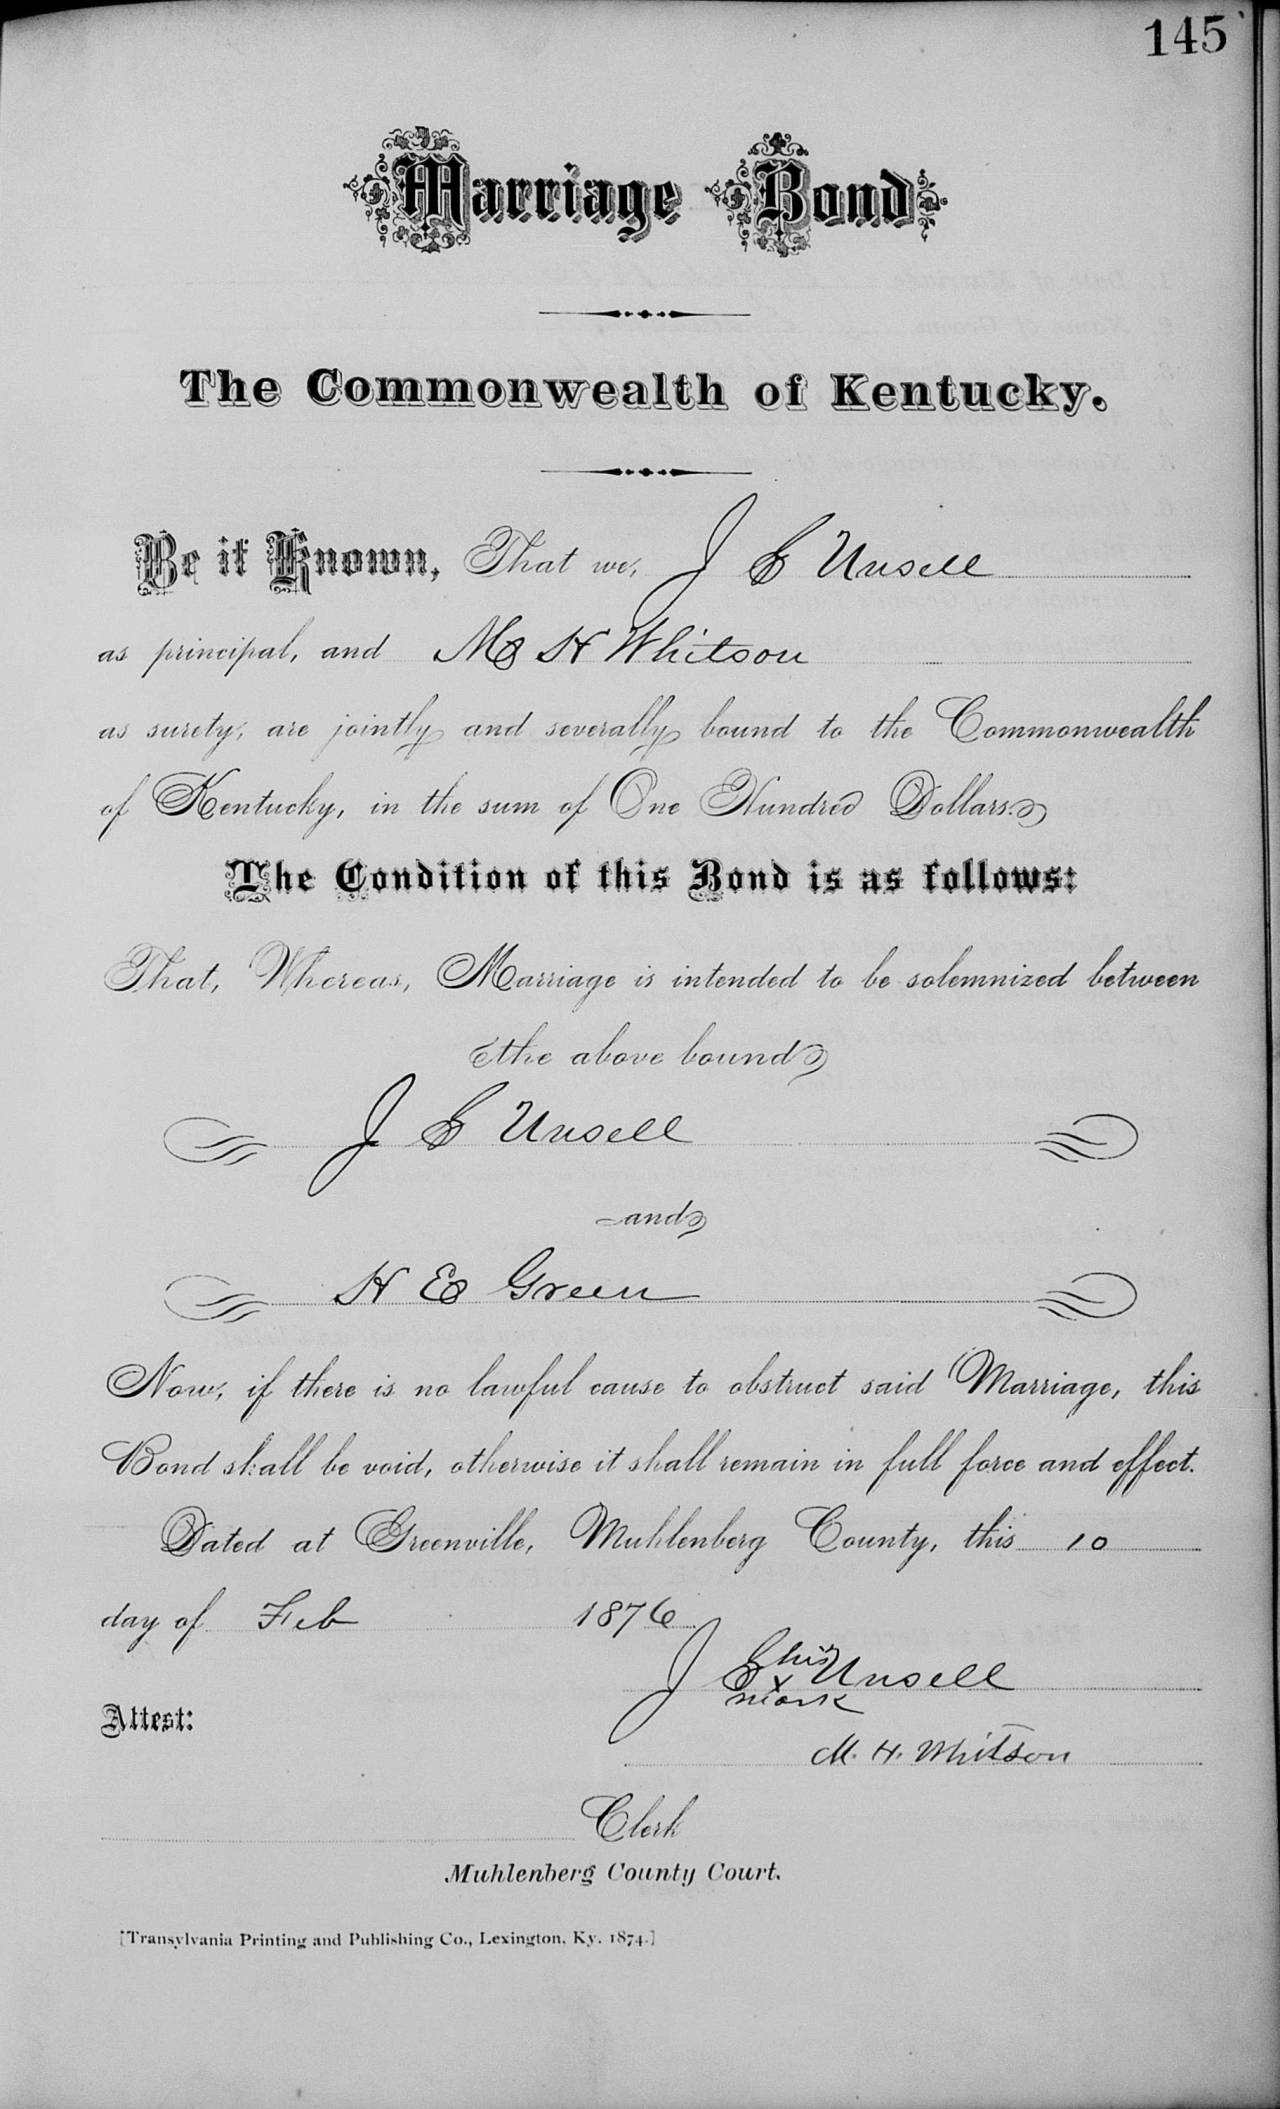 145
Marriage Bond
The Commonwealth of Kentucky.
Be it Known, That we, J C Unsell
as principal, and M H Whitson
as surety, are jointly and severally bound to the Commonwealth
of Kentucky, in the sum of One Hundred Dollars.
The Condition of this Bond is as follows:
That, Whereas, Marriage is intended to be solemnized between
the above bound
J C Unsell
and
H E Green
Now, if there is no lawful cause to obstruct said Marriage, this
Bond shall be void, otherwise it shall remain in full force and effect.
Dated at Greenville, Muhlenberg County, this 10
day of Feb 1876
his
J C x Unsell
mark
Attest:
M. H. Whitson
Clerk
Muhlenberg County Court.
[Transylvania Printing and Publishing Co., Lexington, Ky. 1874.]